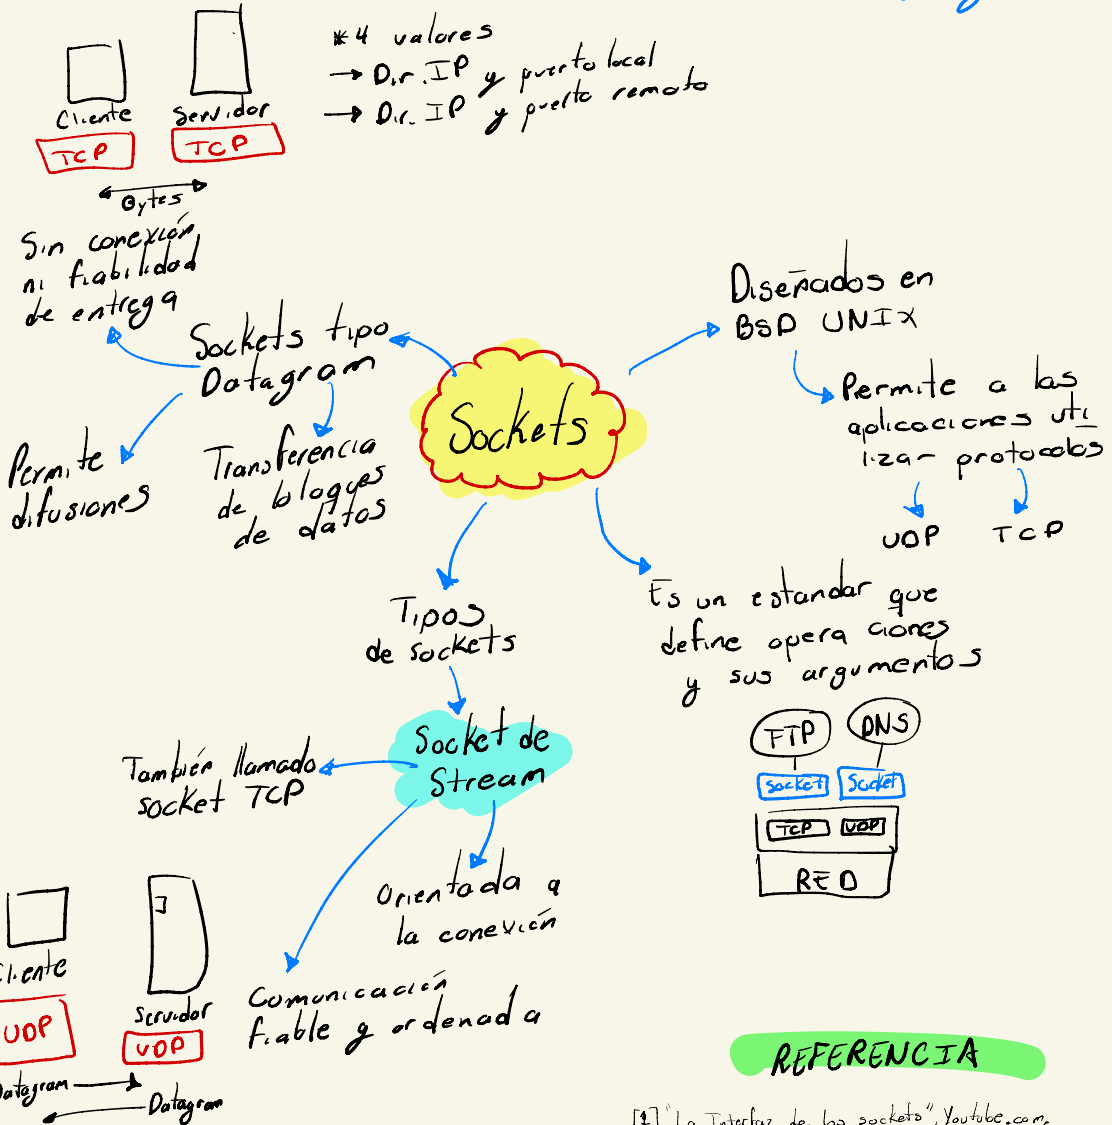 *4 valores
→ Dir. IP y puerto local
→ Dir. IP y puerto remoto
Cliente
Servidor
TCP
TCP
Bytes
Sin conexión
ni fiabilidad
de entrega
Sockets tipo
Datagram
Permite
difusiones
Transferencia
de bloques
de datos
Sockets
Diseñados en
BSD UNIX
Permite a las
aplicaciones uti
lizar protocolos
UDP
TCP
Es un estandar que
define opera ciones
y sus argumentos
FTP
DNS
socket
Socket
TCP
UDP
RED
Tipos
de sockets
Socket de
Stream
También llamado
socket TCP
Orientada a
la conexión
Comunicación
fiable y ordenada
Cliente
Servidor
UDP
UDP
Datagram
Datagram
REFERENCIA
[1] "La Interfaz de los sockets", Youtube.com,